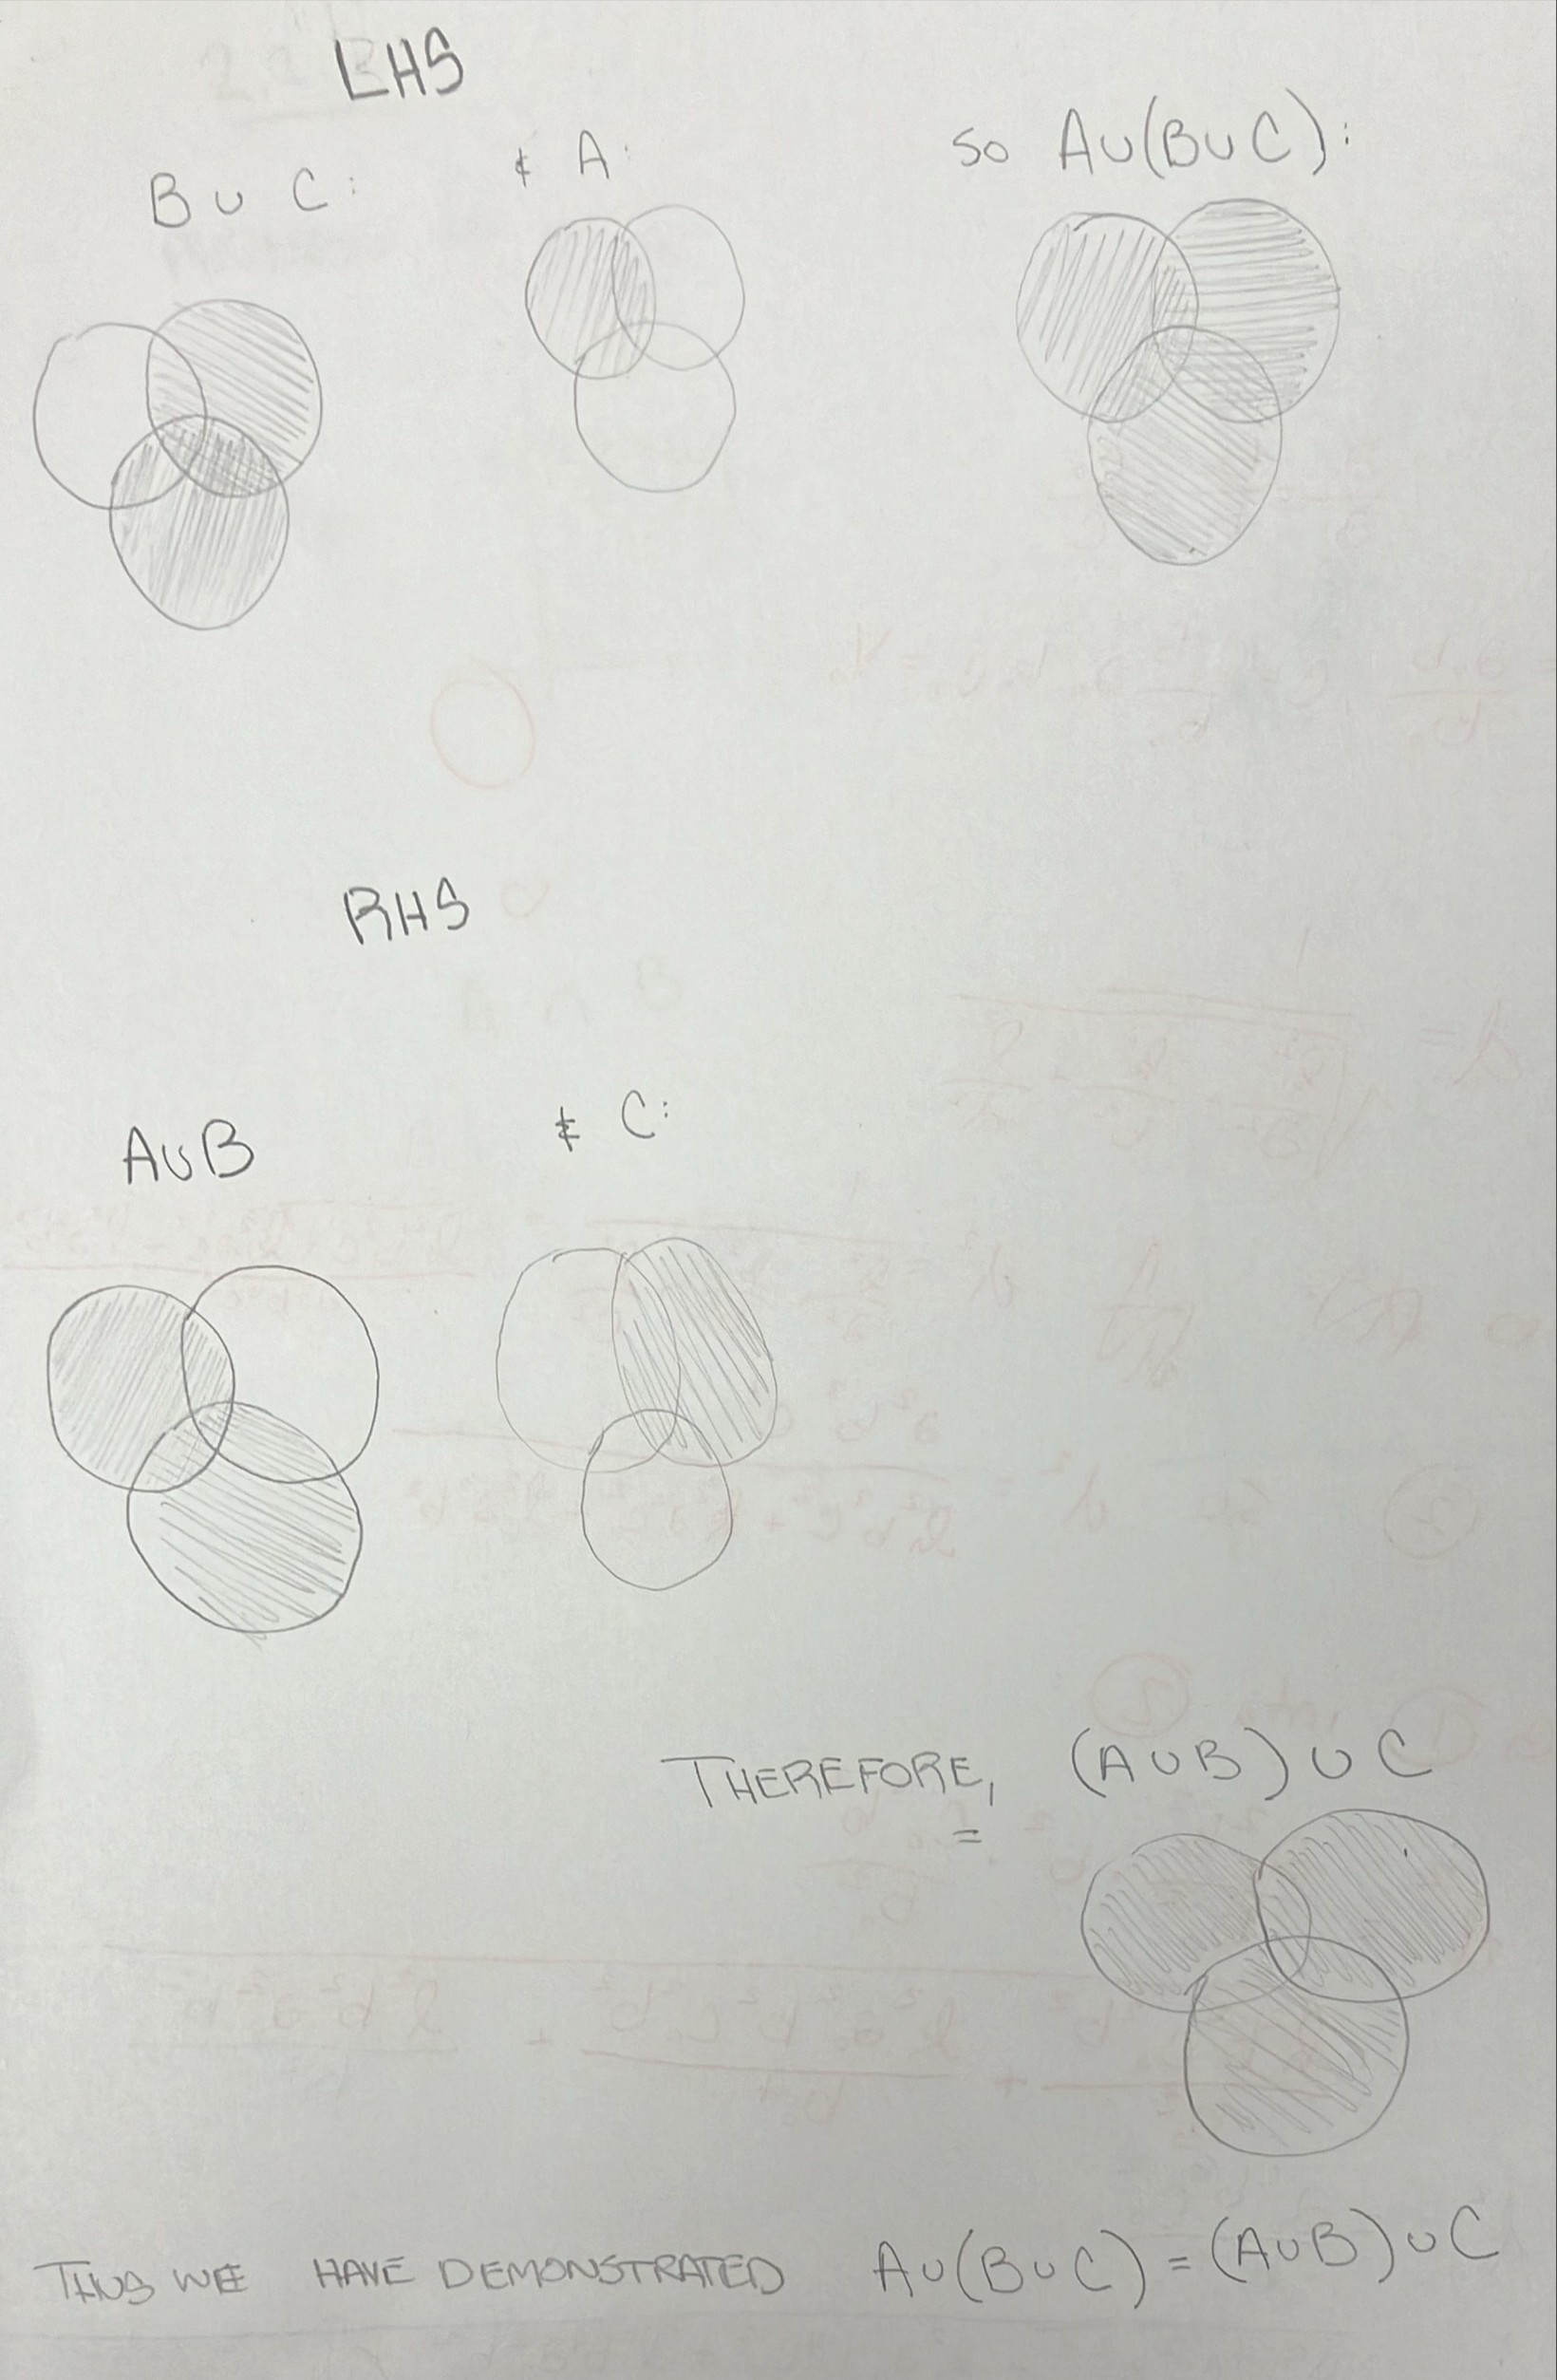 LHS
B ∪ C:
& A:
so A∪(B∪C):
RHS
A∪B
& C:
THEREFORE, (A∪B)∪C
=
THUS WE HAVE DEMONSTRATED A∪(B∪C)=(A∪B)∪C